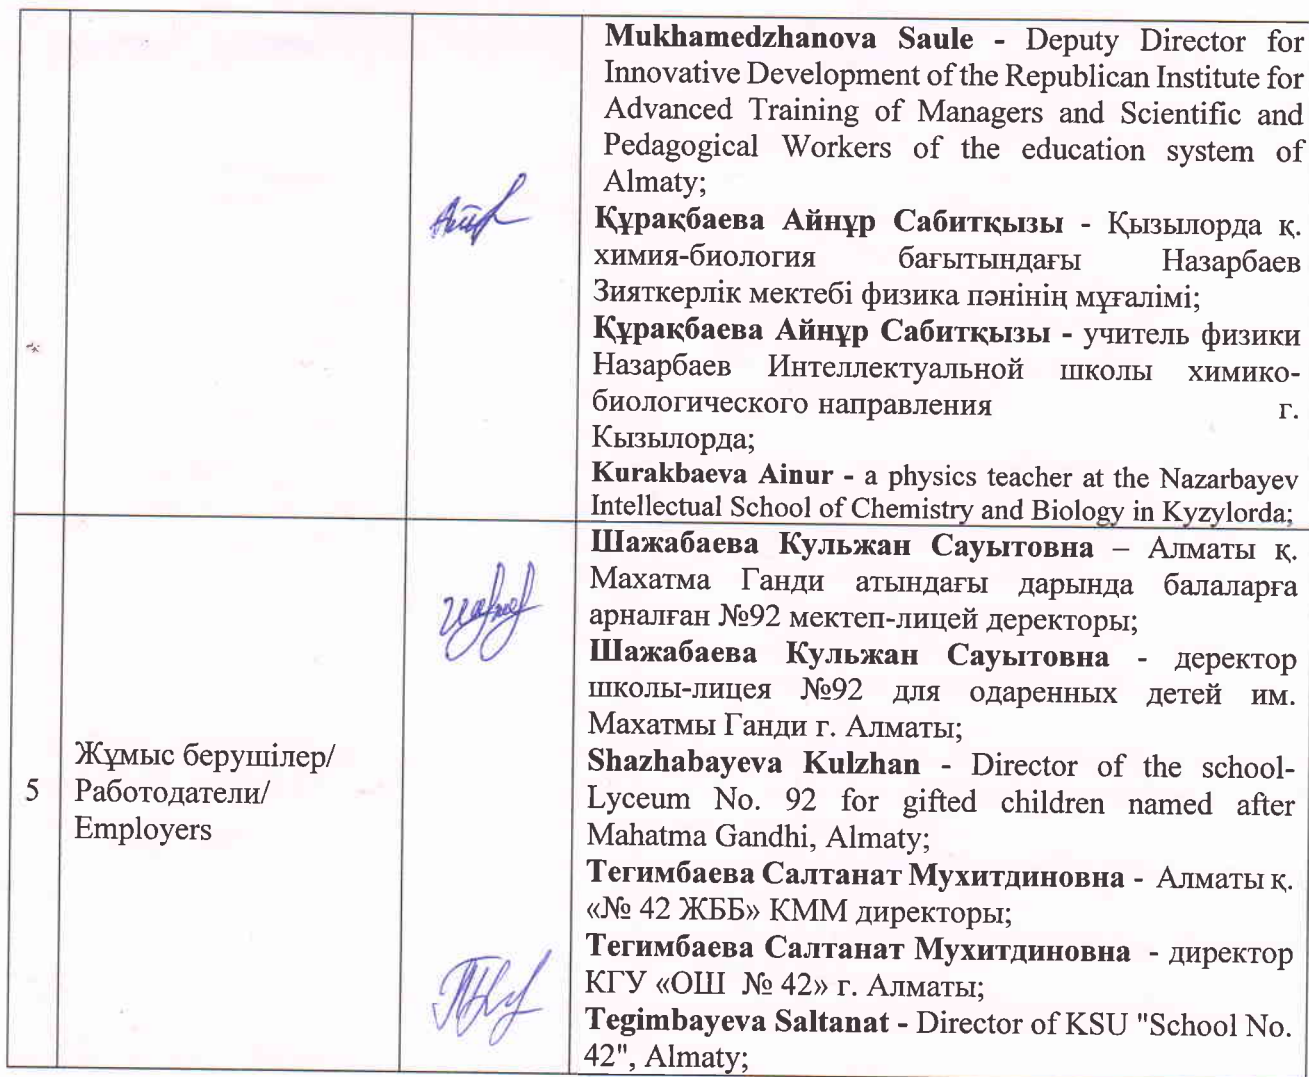 Mukhamedzhanova Saule - Deputy Director for
Innovative Development of the Republican Institute for
Advanced Training of Managers and Scientific and
Pedagogical Workers of the education system of
Almaty;
Құрақбаева Айнұр Сабитқызы - Қызылорда қ.
химия-биология бағытындағы Назарбаев
Зияткерлік мектебі физика пәнінің мұғалімі;
Құрақбаева Айнұр Сабитқызы - учитель физики
Назарбаев Интеллектуальной школы химико-
биологического направления г.
Кызылорда;
Kurakbaeva Ainur - a physics teacher at the Nazarbayev
Intellectual School of Chemistry and Biology in Kyzylorda;
5
Жұмыс берушілер/
Работодатели/
Employers
Шажабаева Кульжан Сауытовна – Алматы қ.
Махатма Ганди атындағы дарында балаларға
арналған №92 мектеп-лицей деректоры;
Шажабаева Кульжан Сауытовна - деректор
школы-лицея №92 для одаренных детей им.
Махатмы Ганди г. Алматы;
Shazhabayeva Kulzhan - Director of the school-
Lyceum No. 92 for gifted children named after
Mahatma Gandhi, Almaty;
Тегимбаева Салтанат Мухитдиновна - Алматы қ.
«№ 42 ЖББ» КММ директоры;
Тегимбаева Салтанат Мухитдиновна - директор
КГУ «ОШ № 42» г. Алматы;
Tegimbayeva Saltanat - Director of KSU "School No.
42", Almaty;